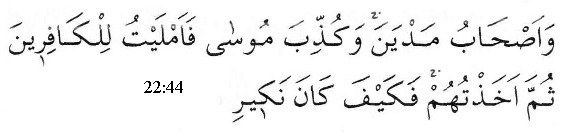 وَاَصْحَابُ مَدْيَنَۚ وَكُذِّبَ مُوسٰى فَاَمْلَيْتُ لِلْكَافِر۪ينَ
ثُمَّ اَخَذْتُهُمْۚ فَكَيْفَ كَانَ نَك۪يرِ 22:44